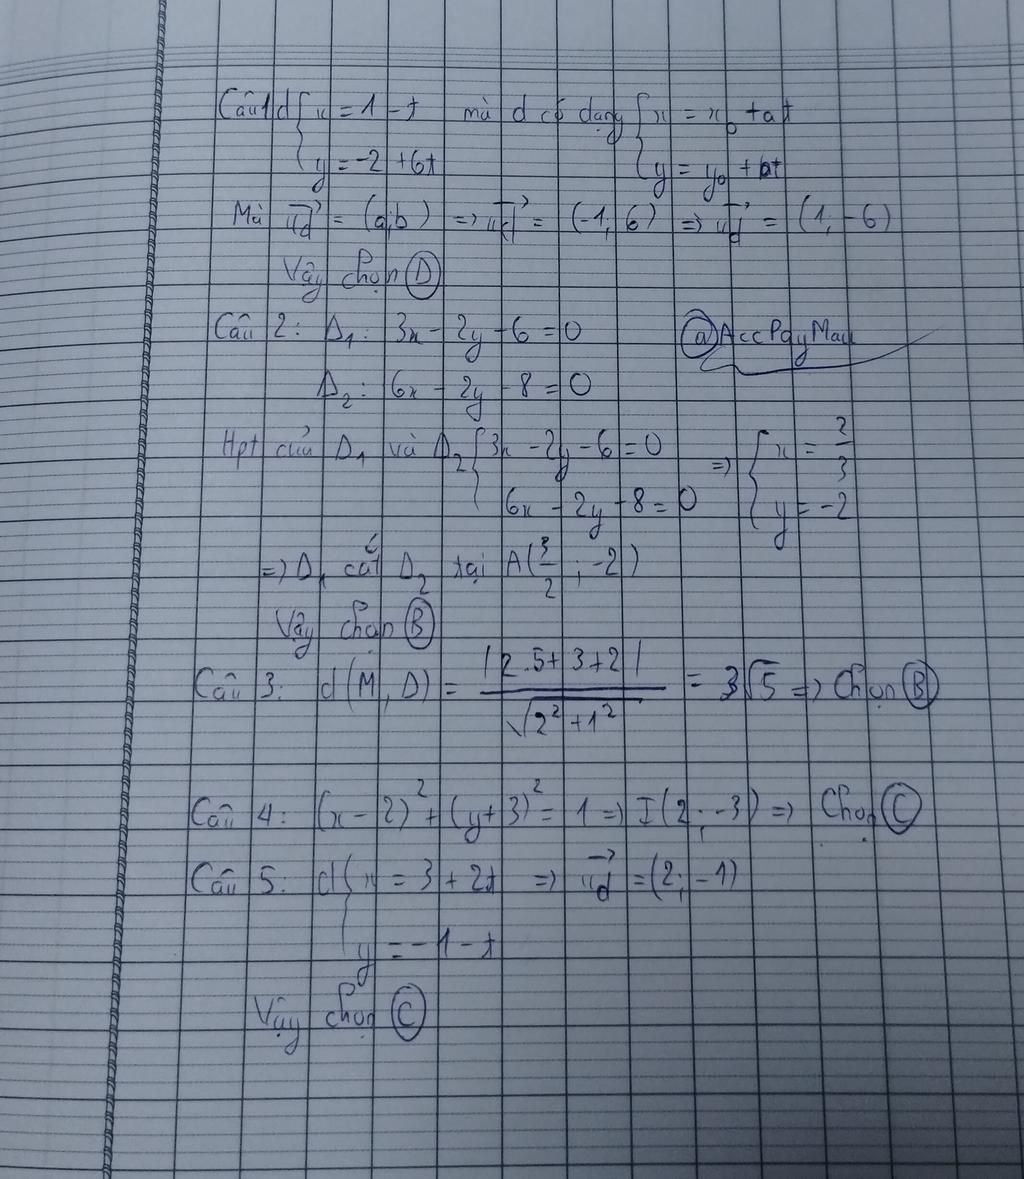 Câu 1 d { x = 1 - t mà d có dạng { x = x₀ + at
y = -2 + 6t y = y₀ + bt
Mà u_d→ = (a;b) => u_d→ = (-1; 6) => u_d→ = (1; -6)
Vậy chọn Ⓓ
Câu 2: Δ₁: 3x - 2y - 6 = 0 @AccPayMau
Δ₂: 6x - 2y - 8 = 0
Hpt của Δ₁ và Δ₂ { 3x - 2y - 6 = 0 => { x = 2/3
6x - 2y - 8 = 0 y = -2
=> Δ₁ cắt Δ₂ tại A(3/2 ; -2)
Vậy chọn Ⓑ
Câu 3: d(M, Δ) = |2.5 + 3 + 2| / √(2² + 1²) = 3√5 => Chọn Ⓑ
Câu 4: (x - 2)² + (y + 3)² = 1 => I(2; -3) => Chọn Ⓒ
Câu 5: d { x = 3 + 2t => u_d→ = (2; -1)
y = -1 - t
Vậy chọn Ⓒ